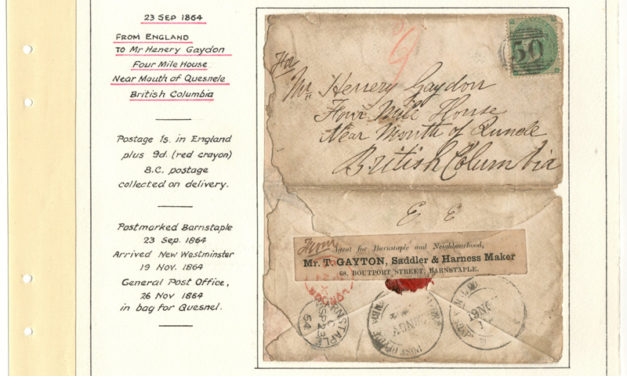 23 SEP 1864
FROM ENGLAND
TO Mr HENERY GAYDON
FOUR MILE HOUSE
NEAR MOUTH OF QUESNELE
BRITISH COLUMBIA
POSTAGE 1s. IN ENGLAND
PLUS 9d. (RED CRAYON)
B.C. POSTAGE
COLLECTED ON DELIVERY.
POSTMARKED BARNSTAPLE
23 SEP. 1864
ARRIVED NEW WESTMINSTER
19 NOV. 1864
GENERAL POST OFFICE,
26 NOV 1864
IN BAG FOR QUESNEL.
9
50
For
Mr Henery Gaydon
Four Mile House
Near Mouth of
British Columbia
E E
From
Agent for Barnstaple and Neighbourhood,
Mr. T. GAYTON, Saddler & Harness Maker
68, BOUTPORT STREET, BARNSTAPLE.
BARNSTAPLE